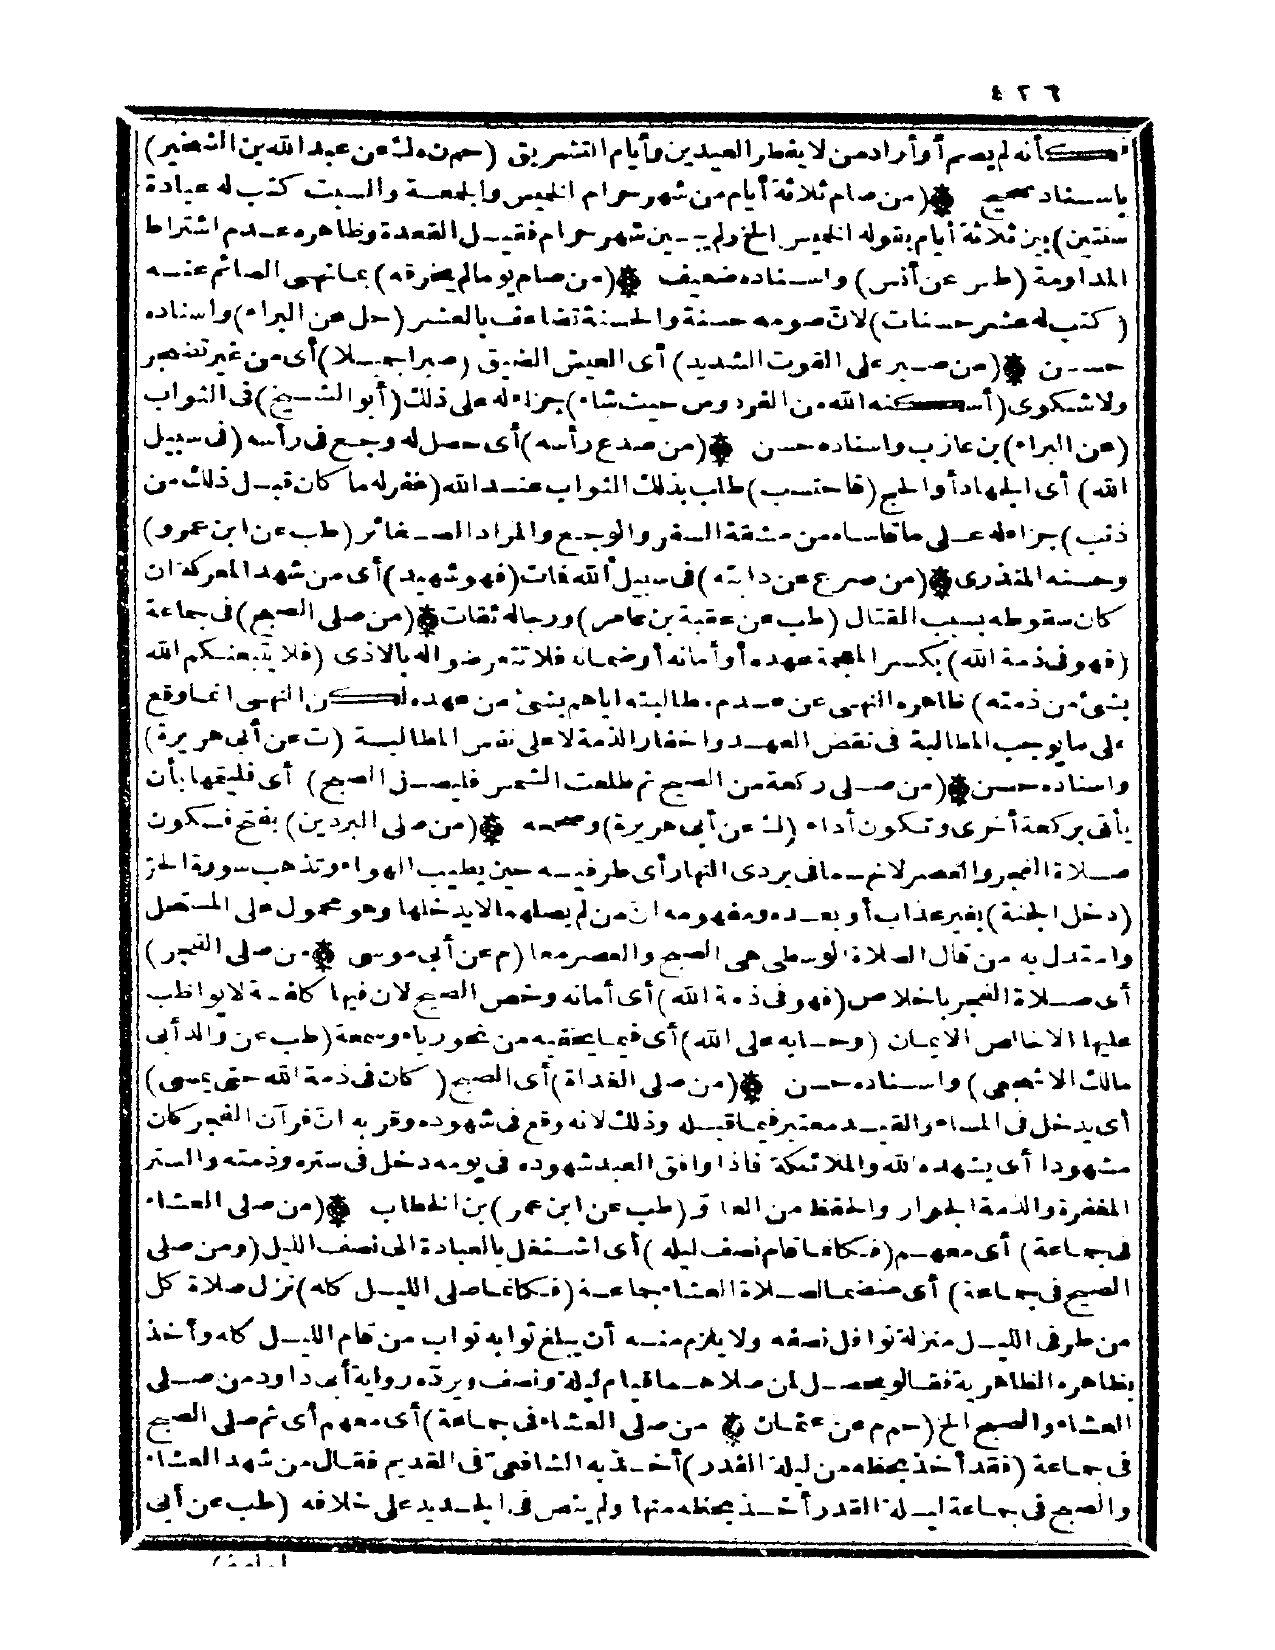 ٤٢٦
فكأنه لم يصم أو أراد من لا يفطر العيدين وأيام التشريق (حم ن ه ك عن عبد الله بن الشخير)
باسناد صحيح ۞ (من صام ثلاثة أيام من شهر حرام الخميس والجمعة والسبت كتب له عبادة
سنتين) بين ثلاثة أيام بقوله الخميس الخ ولم يبين شهر حرام فقيل القعدة وظاهره عدم اشتراط
المداومة (طس عن أنس) واسناده ضعيف ۞ (من صام يوما لم يخرقه) بما نهى الصائم عنه
(كتب له عشر حسنات) لان صومه حسنة والحسنة تضاعف بالعشر (حل عن البراء) واسناده
حسن ۞ (من صبر على القوت الشديد) أى العيش الضيق (صبرا جميلا) أى من غير تضجر
ولا شكوى (أسكنه الله من الفردوس حيث شاء) جزاء له على ذلك (أبو الشيخ) فى الثواب
(عن البراء) بن عازب واسناده حسن ۞ (من صدع رأسه) أى حصل له وجع فى رأسه (فى سبيل
الله) أى الجهاد أو الحج (فاحتسب) طلب بذلك الثواب عند الله (غفر له ما كان قبل ذلك من
ذنب) جزاء له على ما قاساه من مشقة السفر والوجع والمراد الصغائر (طب عن ابن عمرو)
وحسنه المنذرى ۞ (من صرع عن دابته) فى سبيل الله فمات (فهو شهيد) أى من شهد المعركة ان
كان سقوطه بسبب القتال (طب عن عقبة بن عامر) ورجاله ثقات ۞ (من صلى الصبح) فى جماعة
(فهو فى ذمة الله) بكسر المعجمة عهده أو أمانه أو ضمانه فلا تتعرضوا له بالاذى (فلا يتبعنكم الله
بشئ من ذمته) ظاهره النهى عن عدم مطالبته اياهم بشئ من عهده لكن النهى انما وقع
على ما يوجب المطالبة فى نقض العهد واخفار الذمة لا على نفس المطالبة (ت عن أبى هريرة)
واسناده حسن ۞ (من صلى ركعة من الصبح ثم طلعت الشمس فليصل الصبح) أى فليتمها بأن
يأتى بركعة أخرى وتكون أداء (ك عن أبى هريرة) وصححه ۞ (من صلى البردين) بفتح فسكون
صلاة الفجر والعصر لانهما فى بردى النهار أى طرفيه حين يطيب الهواء وتذهب سورة الحر
(دخل الجنة) بغير عذاب أو بعده ومفهومه ان من لم يصلهما لا يدخلها وهو محمول على المستحل
واستدل به من قال الصلاة الوسطى هى الصبح والعصر معا (م عن أبى موسى ۞ من صلى الفجر)
أى صلاة الفجر باخلاص (فهو فى ذمة الله) أى أمانه وخص الصبح لان فيها كلفة لا يواظب
عليها الا خالص الايمان (وحسابه على الله) أى فيما يخفيه من نحو رياء وسمعة (طب عن والد أبى
مالك الاشجعى) واسناده حسن ۞ (من صلى الغداة) أى الصبح (كان فى ذمة الله حتى يمسى)
أى يدخل فى المساء والقيد معتبر فيما قبله وذلك لانه وقع فى شهوده وقربه ان قرآن الفجر كان
مشهودا أى يشهده الله والملائكة فاذا وافق العبد شهوده فى يومه دخل فى ستره وذمته والستر
المغفرة والذمة الجوار والحفظ من العدو (طب عن ابن عمر) بن الخطاب ۞ (من صلى العشاء
فى جماعة) أى معهم (فكأنما قام نصف ليله) أى اشتغل بالعبادة الى نصف الليل (ومن صلى
الصبح فى جماعة) أى منضما لصلاة العشاء جماعة (فكأنما صلى الليل كله) نزل صلاة كل
من طرفى الليل منزلة نوافل نصفه ولا يلزم منه أن يبلغ ثوابه ثواب من قام الليل كله وأخذ
بظاهره الظاهرية فقالو يحصل لمن صلاهما قيام ليلة ونصف ويرده رواية أبى داود من صلى
العشاء والصبح الخ (حم م عن عثمان ۞ من صلى العشاء فى جماعة) أى معهم أى ثم صلى الصبح
فى جماعة (فقد أخذ بحظه من ليلة القدر) أخذ به الشافعى فى القديم فقال من شهد العشاء
والصبح فى جماعة ليلة القدر أخذ بحظه منها ولم ينص فى الجديد على خلافه (طب عن أبى
امامة)